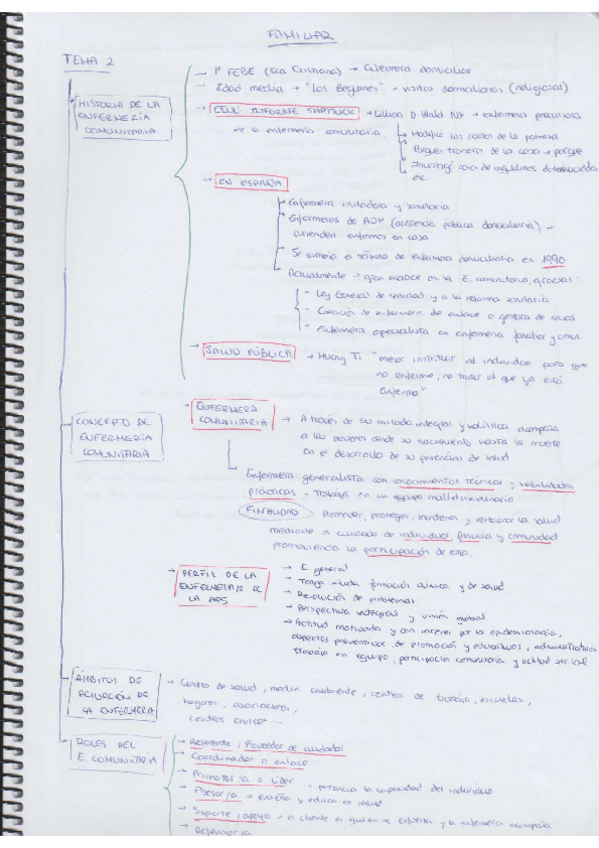 FAMILIAR
TEMA 2
HISTORIA DE LA
ENFERMERÍA
COMUNITARIA
→ 1ª FEBE (Era Cristiana) → Enfermera domicilios
→ Edad media → "Los Beguines" → visitas domiciliarias (religiosas)
→ EEUU INFORME SHATTUCK → Lillian D Wald NY → enfermera precursora
de la enfermería comunitaria.
→ EN ESPAÑA
→ Enfermera visitadora y sanitaria
→ Enfermeras de APD (asistencia pública domiciliaria) →
atienden enfermos en casa
→ Se el número de enfermera domiciliaria en 1990
→ Actualmente → gran avance en la E. comunitaria, gracias:
- Ley General de sanidad y a la reforma sanitaria
- Creación de enfermera de enlace o gestora de casos
- Enfermera especialista en enfermería familiar y comun.
→ SALUD PÚBLICA → Huang Ti "mejor instruir al individuo para que
no enferme, no tratar al que ya está
enfermo"
CONCEPTO DE
ENFERMERÍA
COMUNITARIA
→ ENFERMERA
COMUNITARIA
→ A través de su mirada integral y holística acompaña
a las personas desde su nacimiento hasta la muerte
en el desarrollo de su potencial de salud
Enfermera generalista con conocimientos teóricos y habilidades
prácticas → trabaja en un equipo multidisciplinario
FINALIDAD Promover, proteger, mantener y restaurar la salud
mediante el cuidado de individuos, familia y comunidad
promoviendo la participación de esta.
→ PERFIL DE LA
ENFERMERA/O DE
LA APS
→ E general
→ Tenga formación clínica y de salud
→ Resolución de problemas
→ Perspectiva integral y visión global
→ Actitud motivada y con interés por la epidemiología,
aspectos preventivos, de promoción y educativos, administrativos
trabajo en equipo, participación comunitaria y actitud social
ÁMBITOS DE
ACTUACIÓN DE
LA ENFERMERÍA
→ Centro de salud, medio ambiente, centros de trabajo, escuelas,
hogares, asociaciones,
centros cívicos...
ROLES DEL
E. COMUNITARIA
→ Referente, Proveedor de cuidados
→ Coordinador o enlace
→ Promotor/a o líder → potencia la capacidad del individuo
→ Asesor/a → enseña y educa en salud
→ Soporte/apoyo → el cliente es quien se esfuerza y la enfermera acompaña